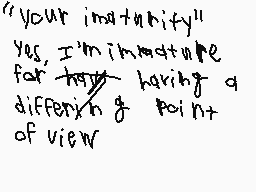 "your imaturity"
Yes, I'm immature
for having a
differing point
of view